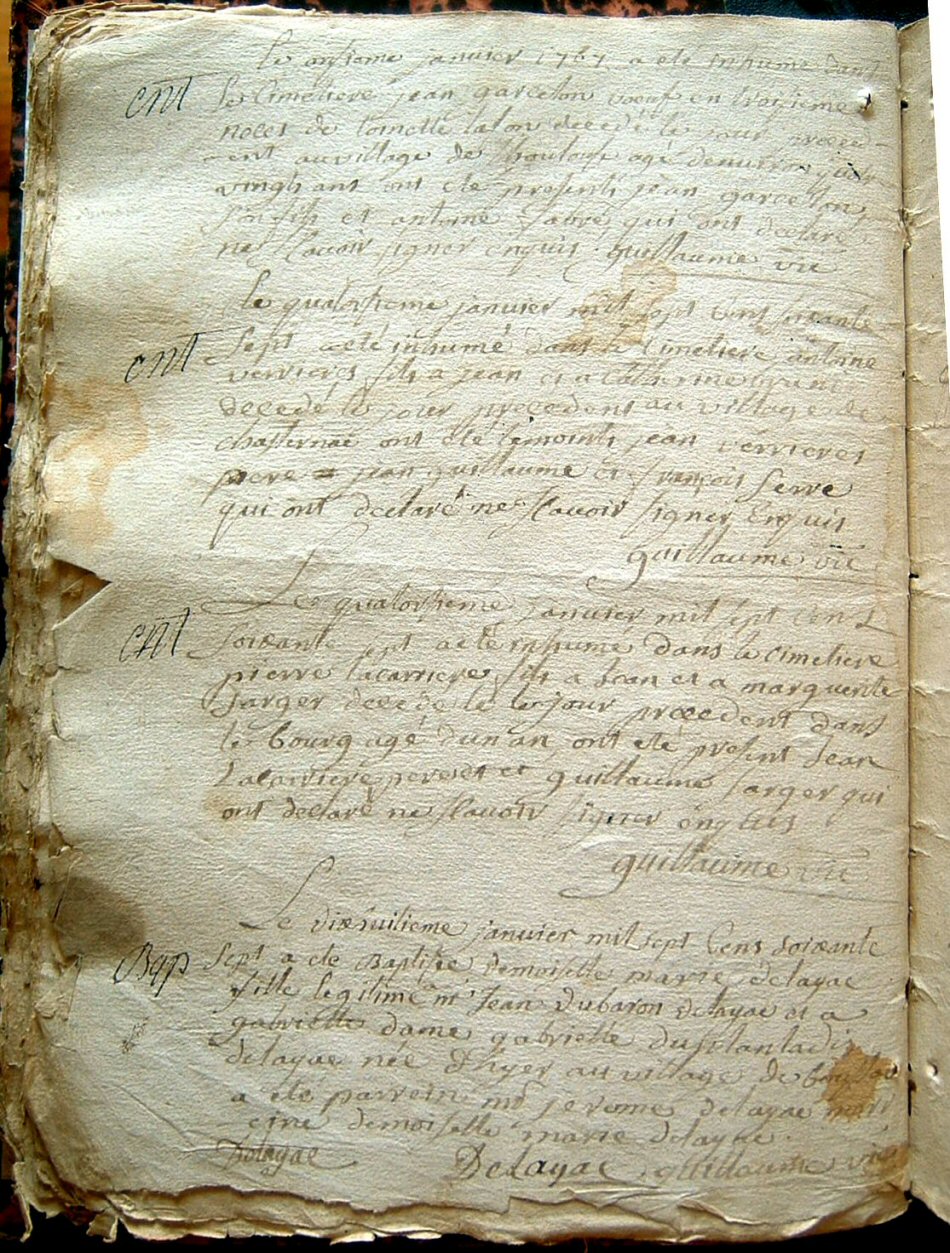 Le onsieme janvier 1767 a ete inhume dans
cnt le Cimetiere jean garcelon voeuf en troisieme
noces de tomette lalon decedé le jour preced-
-ent au village de agé denviron quatre
vingh ans ont ete presents jean garcelon
son fils et antoine fabre qui ont declaré
ne sçavoir signer enquis guillaume vic
Le quatorsieme janvier mil sept cens soixante
cnt sept a eté inhumé dans le Cimetiere antoine
verrieres fils a jean et a Catherine
decedé le jour precedent au village de
ont eté temoints jean verrieres
pere = jean guillaume et françois serre
qui ont declaré ne sçavoir signer Enquis
guillaume vic
Le quatorsieme janvier mil sept Cens
cnt soixante sept a eté inhumé dans le cimetiere
pierre lacarriere fils a Jean et a marguerite
sarger decedé le le jour precedent dans
le bourg agé dun an ont eté present Jean
lacarriere pere et guillaume sarger qui
ont declaré ne sçavoir signer enquis
guillaume vic
Le dixhuitieme janvier mil sept Cens soixante
Bap sept a ete Baptisée demoiselle marie delayac
fille legitime mr Jean dubaron delayac et a
gabrielle dame gabrielle
delayac née d'hyer au village de
a eté parrein mr jerome delayac marr
-eine demoiselle marie delayac.
Delayac Delayac guillaume vic